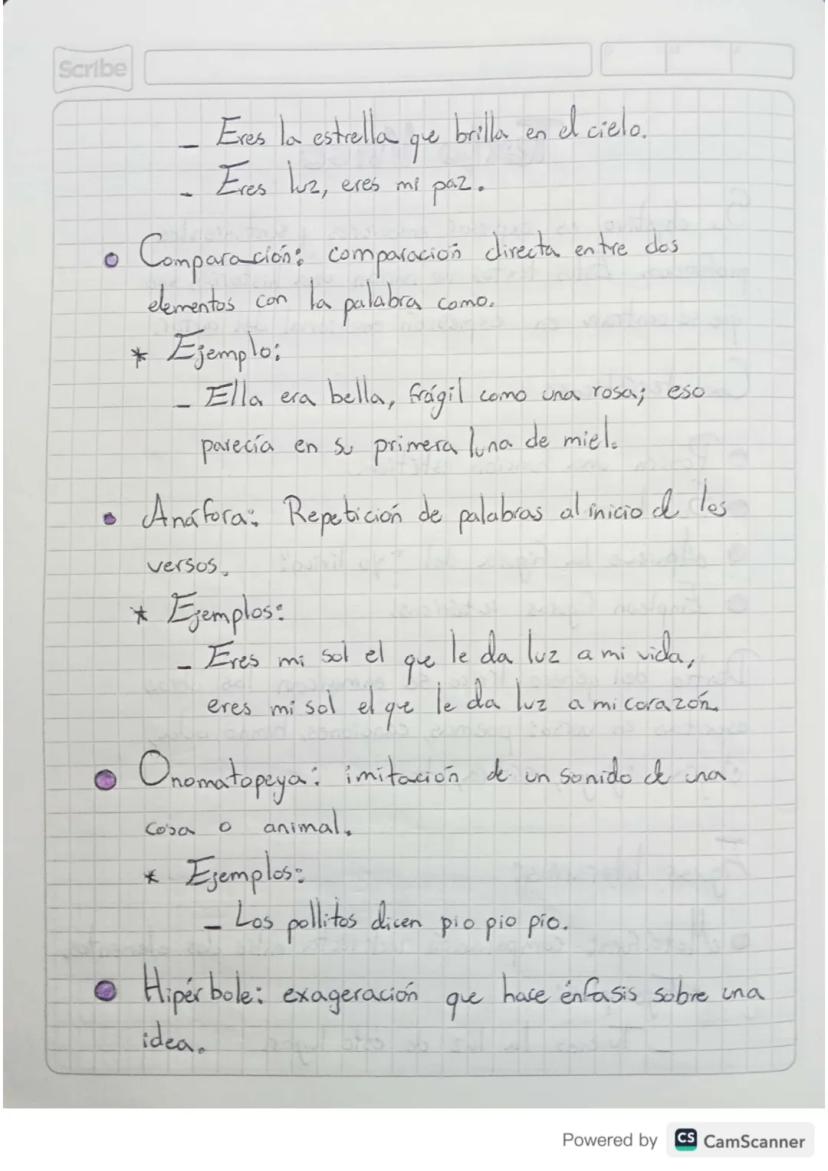 Scribe
- Eres la estrella que brilla en el cielo.
- Eres luz, eres mi paz.
Comparación: comparación directa entre dos
elementos con la palabra como.
* Ejemplo:
- Ella era bella, frágil como una rosa; eso
parecía en su primera luna de miel.
Anáfora: Repetición de palabras al inicio de los
versos.
* Ejemplos:
- Eres mi sol el que le da luz a mi vida,
eres mi sol el que le da luz a mi corazón.
Onomatopeya: imitación de un sonido de una
cosa o animal.
* Ejemplos:
- Los pollitos dicen pio pio pio.
Hipérbole: exageración que hace énfasis sobre una
idea.
Powered by CS CamScanner